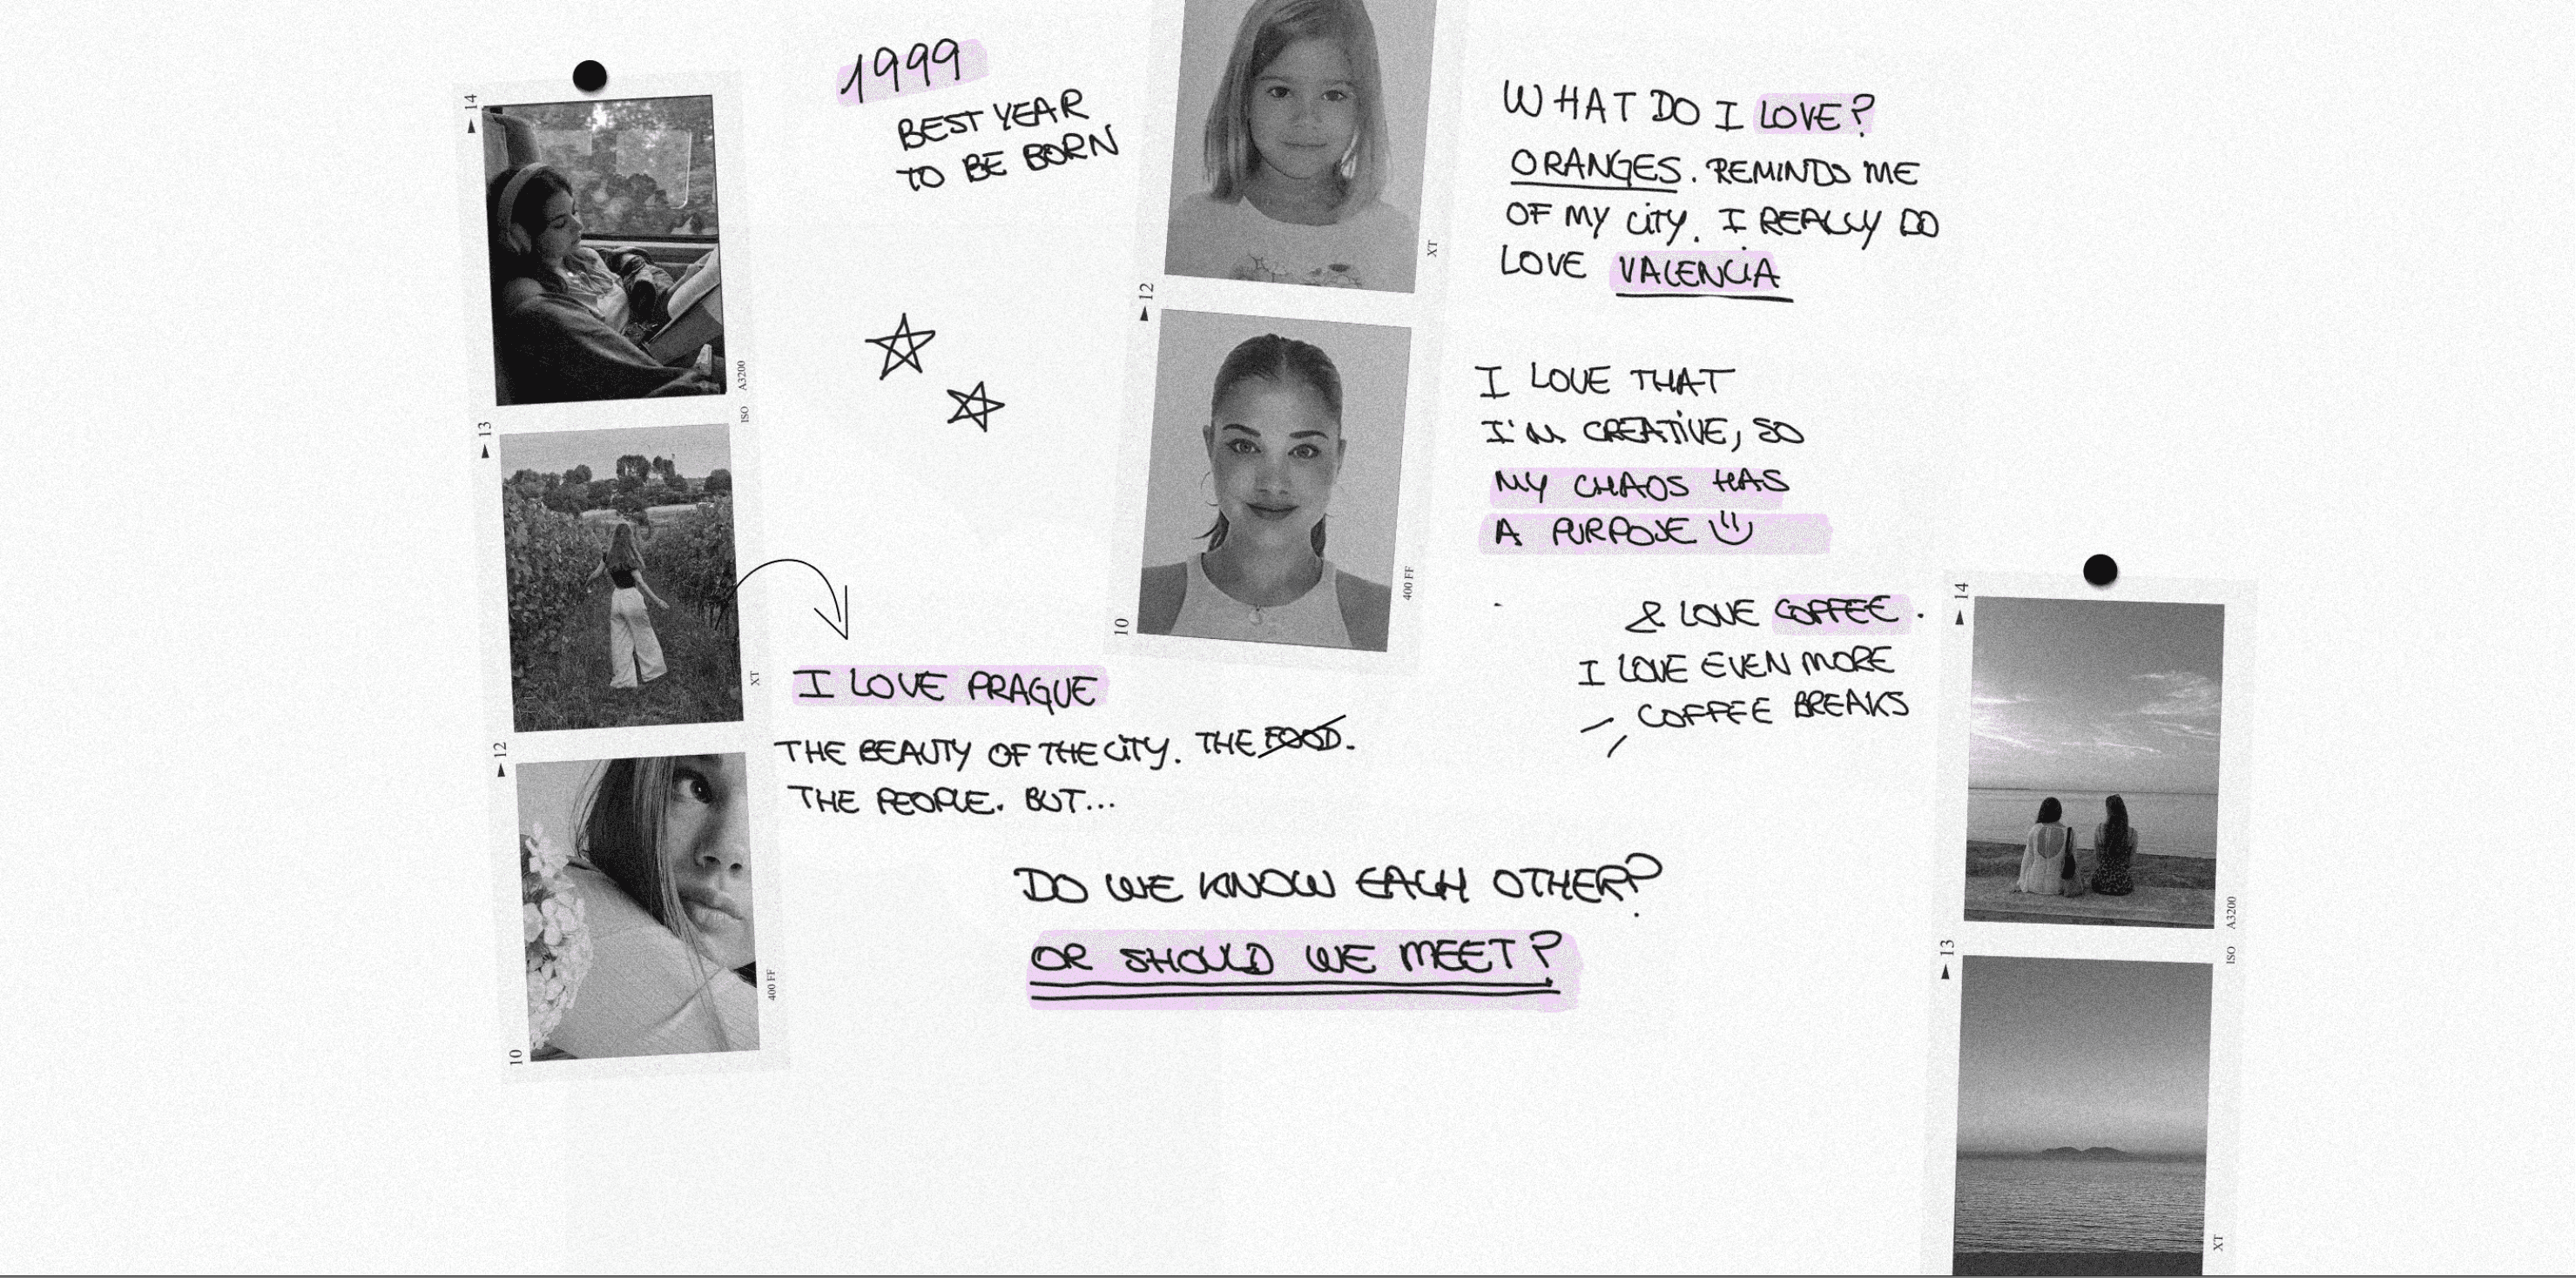 1999
BEST YEAR
TO BE BORN
WHAT DO I LOVE?
ORANGES. REMINDS ME
OF MY CITY. I REALLY DO
LOVE VALENCIA
I LOVE THAT
I'M CREATIVE, SO
MY CHAOS HAS
A PURPOSE
& LOVE COFFEE.
I LOVE EVEN MORE
COFFEE BREAKS
I LOVE PRAGUE
THE BEAUTY OF THE CITY. THE FOOD.
THE PEOPLE. BUT...
DO WE KNOW EACH OTHER?
OR SHOULD WE MEET?
14
ISO A3200
13
XT
12
400 FF
10
XT
12
400 FF
10
14
ISO A3200
13
XT